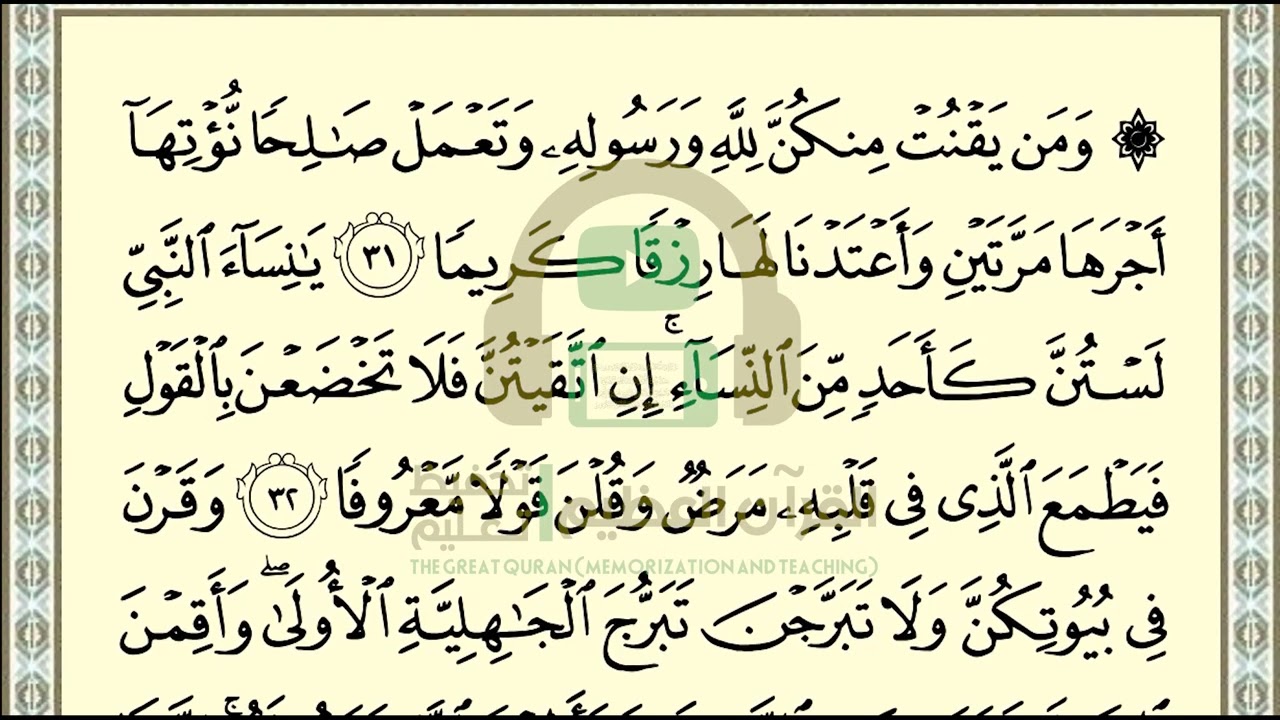 ۞ وَمَن يَقْنُتْ مِنكُنَّ لِلَّهِ وَرَسُولِهِۦ وَتَعْمَلْ صَـٰلِحًا نُّؤْتِهَآ
أَجْرَهَا مَرَّتَيْنِ وَأَعْتَدْنَا لَهَا رِزْقًا كَرِيمًا ٣١ يَـٰنِسَآءَ ٱلنَّبِىِّ
لَسْتُنَّ كَأَحَدٍ مِّنَ ٱلنِّسَآءِ ۚ إِنِ ٱتَّقَيْتُنَّ فَلَا تَخْضَعْنَ بِٱلْقَوْلِ
فَيَطْمَعَ ٱلَّذِى فِى قَلْبِهِۦ مَرَضٌ وَقُلْنَ قَوْلًا مَّعْرُوفًا ٣٢ وَقَرْنَ
القرآن العظيم تحفيظ تعليم
THE GREAT QURAN (MEMORIZATION AND TEACHING)
فِى بُيُوتِكُنَّ وَلَا تَبَرَّجْنَ تَبَرُّجَ ٱلْجَـٰهِلِيَّةِ ٱلْأُولَىٰ ۖ وَأَقِمْنَ